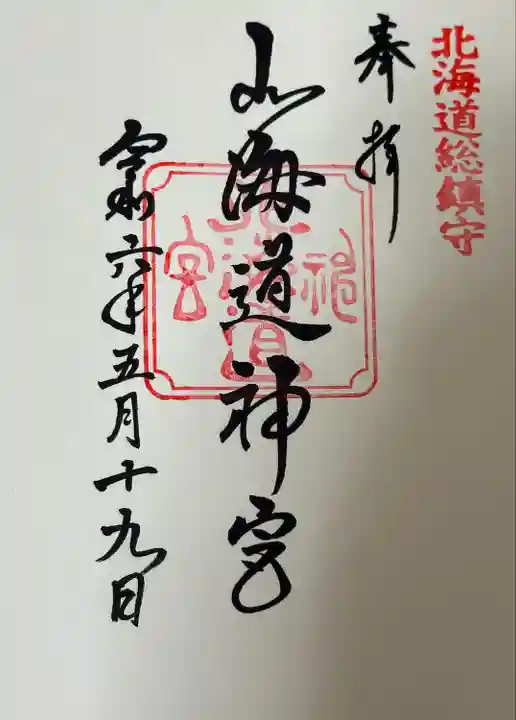 北海道総鎮守
奉拝
北海道神宮
令和六年五月十九日
北海道
神
宮